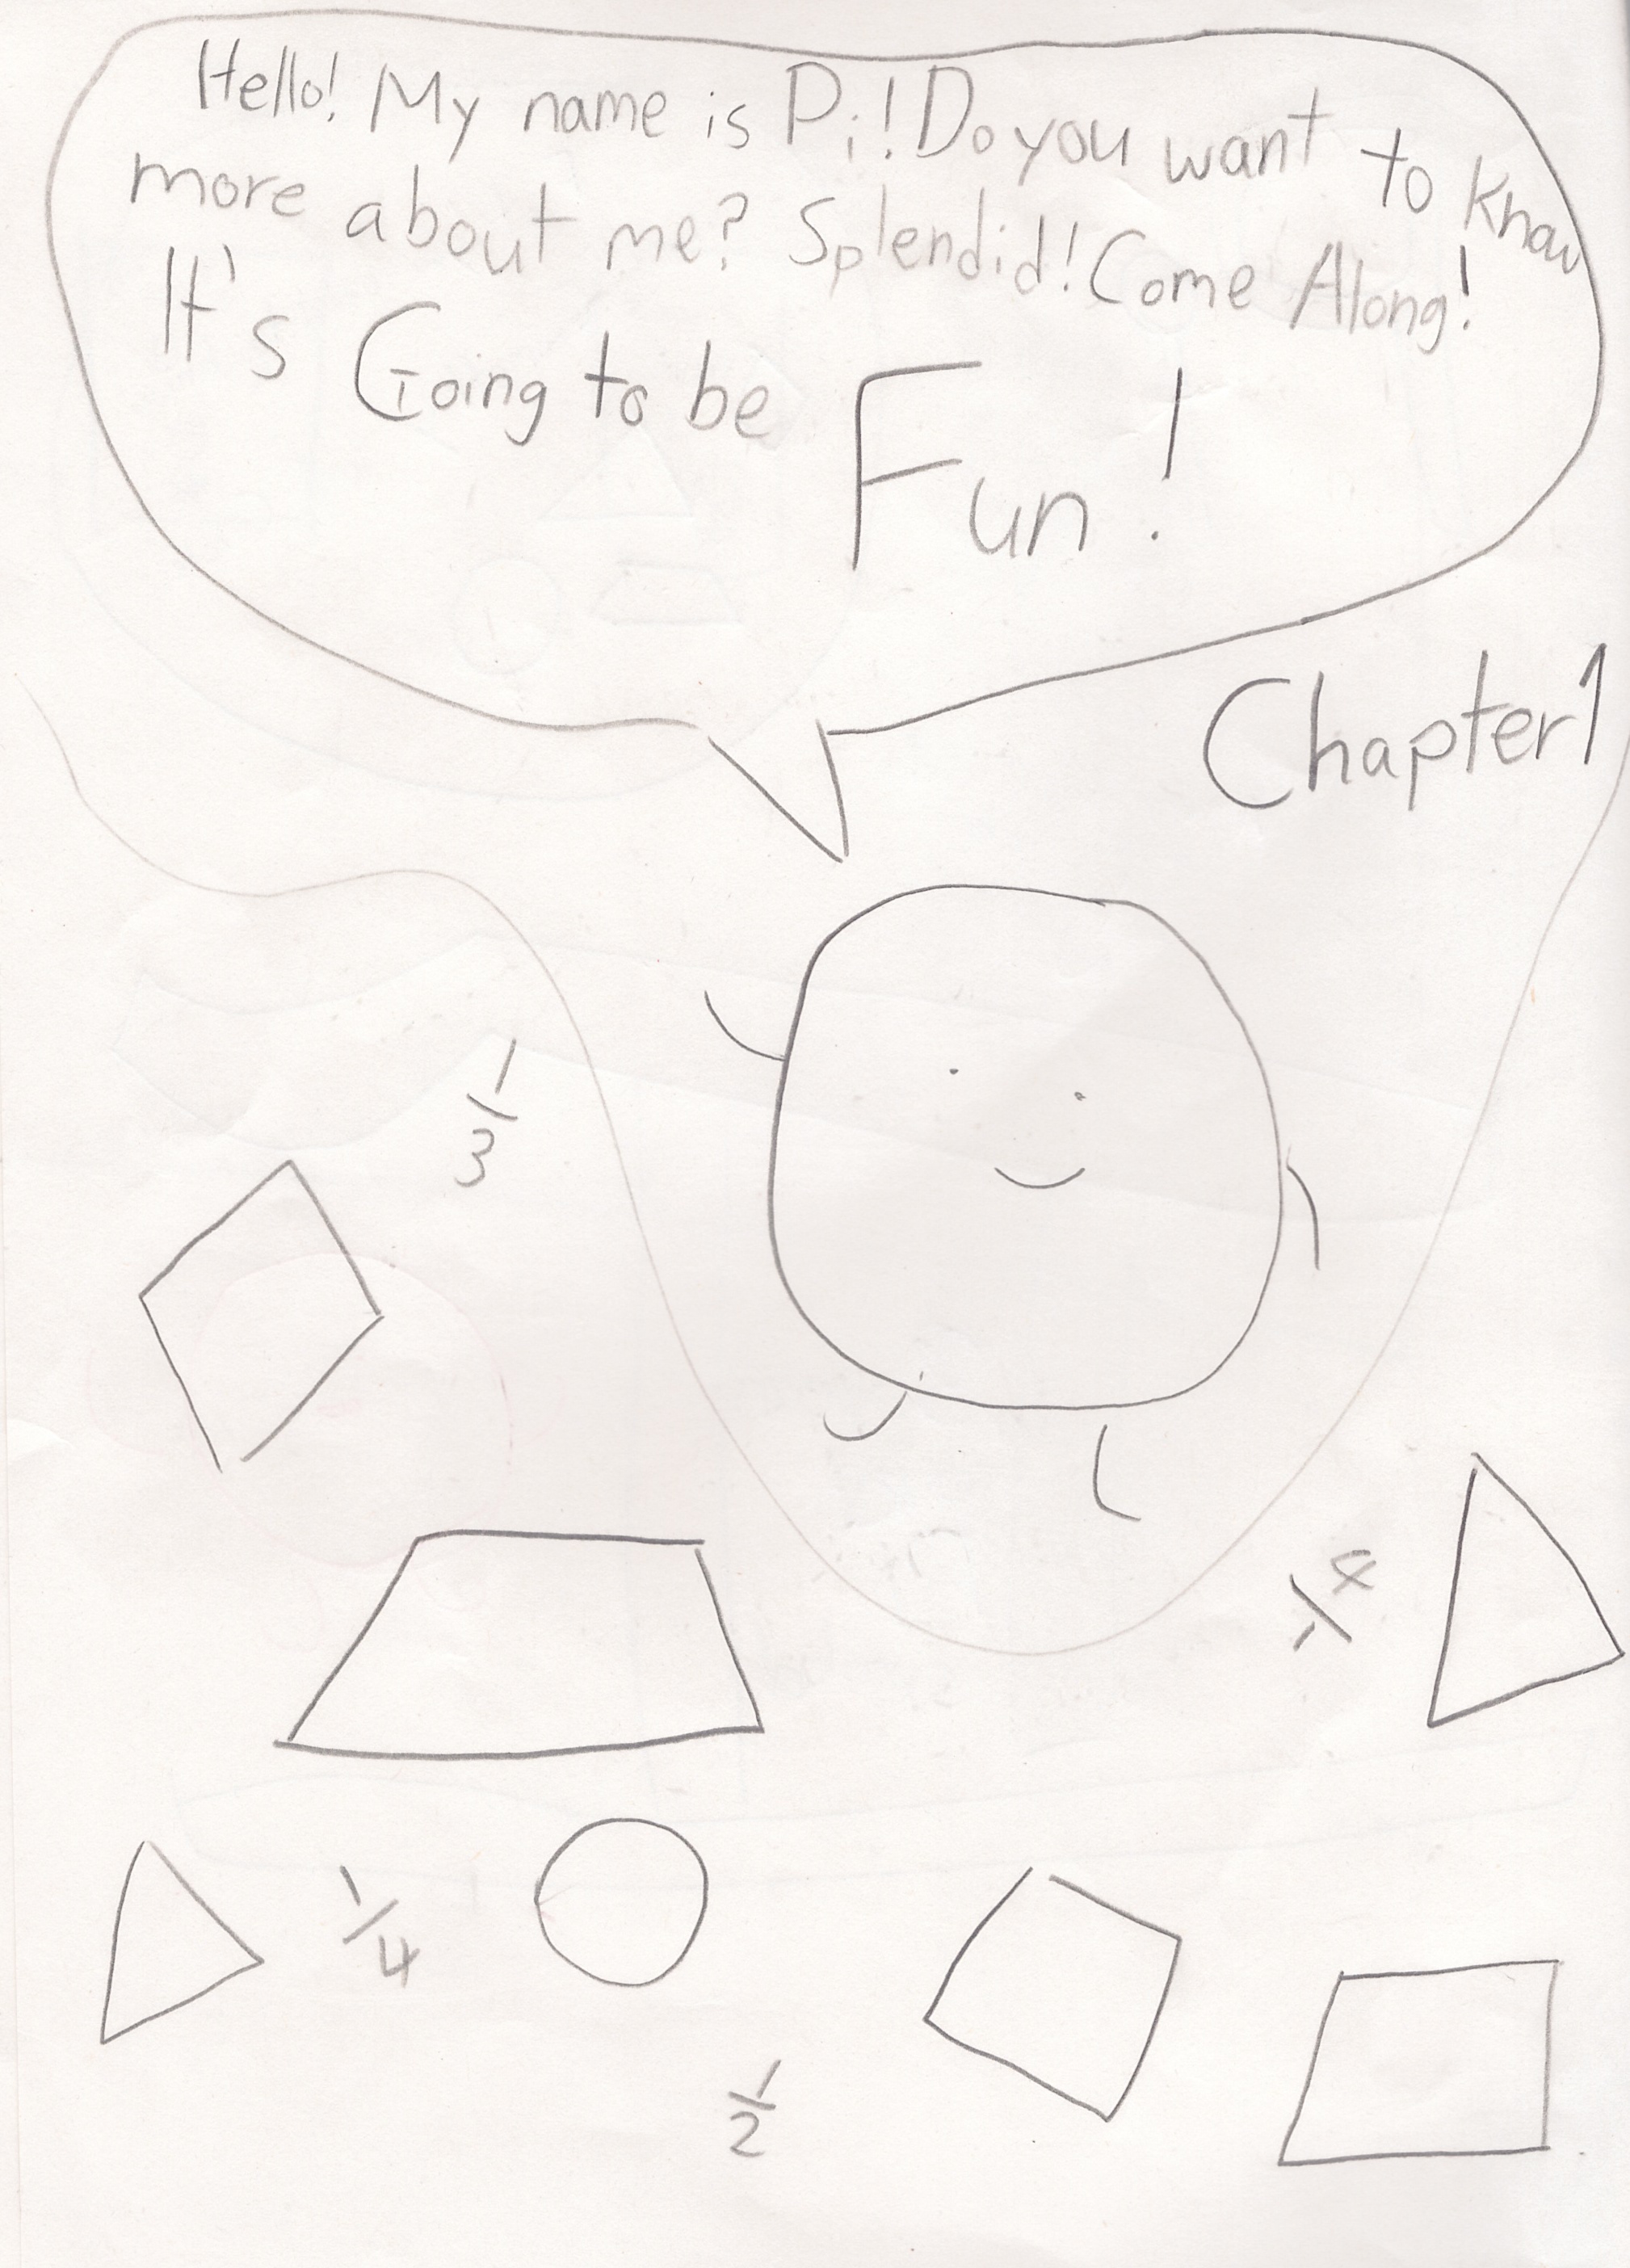 Hello! My name is Pi! Do you want to know
more about me? Splendid! Come Along!
It's Going to be
Fun!
Chapter 1
1/3
1/4
1/4
1/2